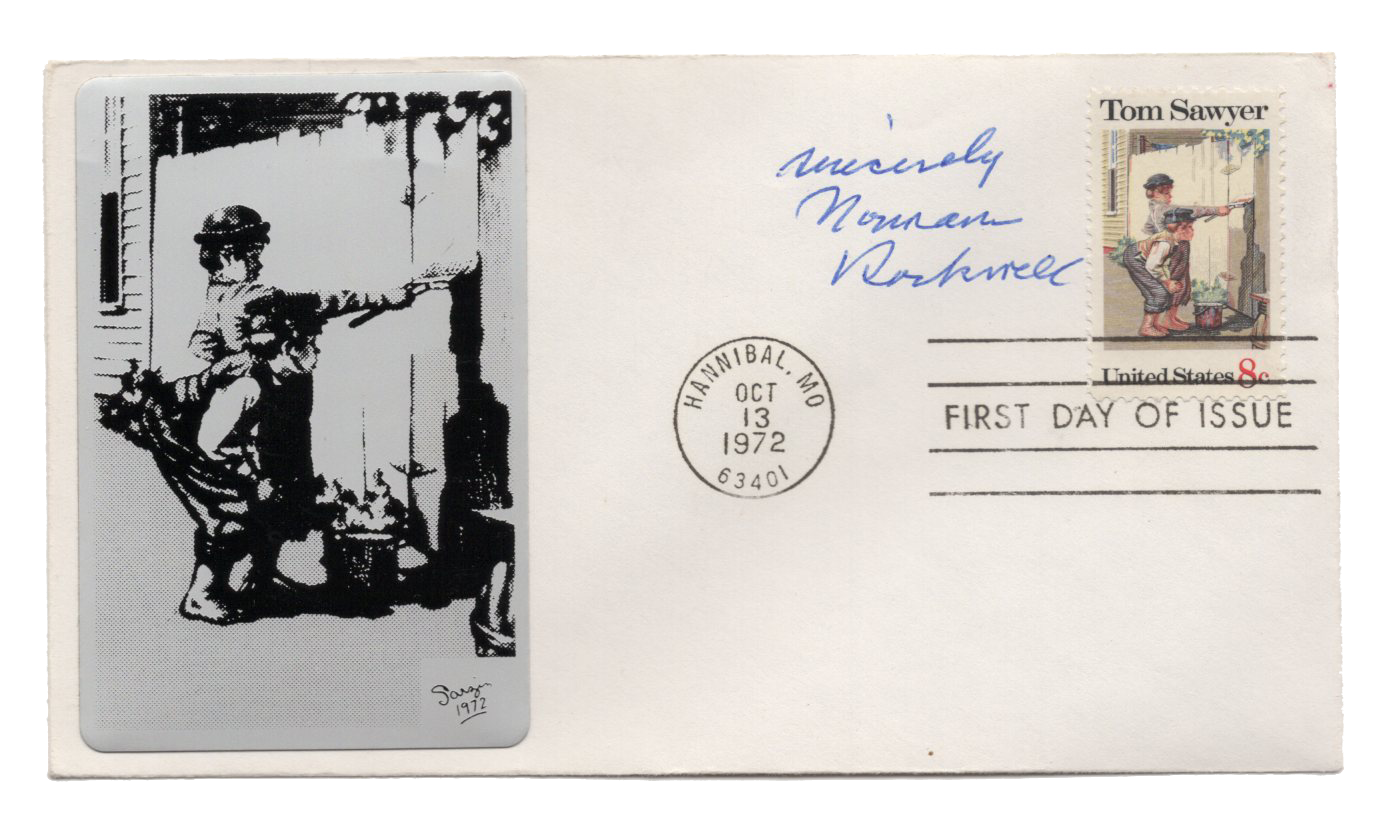 Tom Sawyer
sincerely
Norman
Rockwell
United States 8c
HANNIBAL, MO
OCT
13
1972
63401
FIRST DAY OF ISSUE
Sarzin
1972